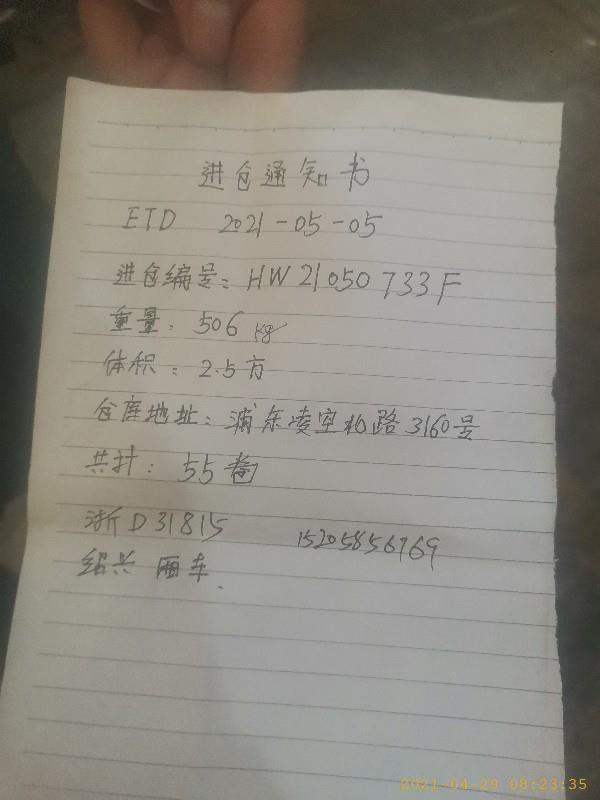 进仓通知书
ETD 2021-05-05
进仓编号：HW21050733F
重量：506kg
体积：2.5方
仓库地址：浦东凌空北路3160号
共计：55卷
浙D31815 15205856769
绍兴 厢车.
2021-04-29 08:23:35